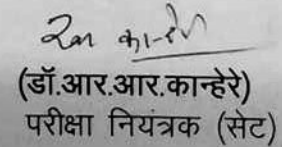 (डॉ.आर.आर.कान्हेरे)
परीक्षा नियंत्रक (सेट)